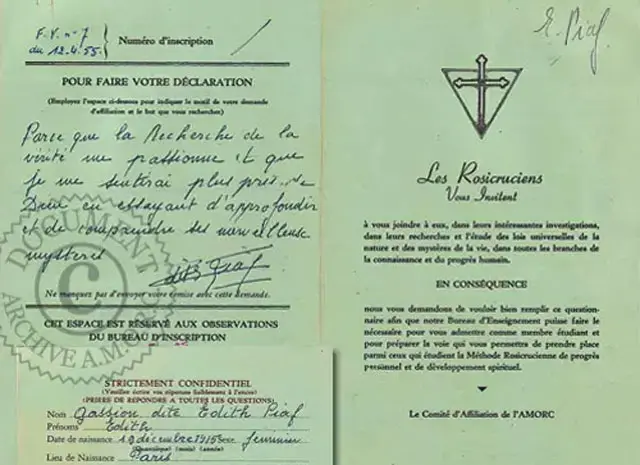 F.V. n° 7
du 12.4.55.
Numéro d'inscription
POUR FAIRE VOTRE DÉCLARATION
(Employez l'espace ci-dessous pour indiquer le motif de votre demande
d'affiliation et le but que vous recherchez)
Parce que la Recherche de la
vérité me passionne et que
je me sentirai plus près de
Dieu en essayant d'approfondir
et de comprendre ses merveilleuse
mystères
Edith Piaf
Ne manquez pas d'envoyer votre remise avec cette demande.
CET ESPACE EST RÉSERVÉ AUX OBSERVATIONS
DU BUREAU D'INSCRIPTION
DOCUMENT
ARCHIVE A.M.
STRICTEMENT CONFIDENTIEL
(Veuillez écrire vos réponses lisiblement à l'encre)
(PRIÈRE DE RÉPONDRE A TOUTES LES QUESTIONS)
Nom Gassion dite Edith Piaf
Prénoms Edith
Date de naissance 19 décembre 1915 Sexe féminin
(Quantième) (mois) (année)
Lieu de Naissance Paris
E. Piaf
Les Rosicruciens
Vous Invitent
à vous joindre à eux, dans leurs intéressantes investigations,
dans leurs recherches et l'étude des lois universelles de la
nature et des mystères de la vie, dans toutes les branches de
la connaissance et du progrès humain.
EN CONSÉQUENCE
nous vous demandons de vouloir bien remplir ce question-
naire afin que notre Bureau d'Enseignement puisse faire le
nécessaire pour vous admettre comme membre étudiant et
pour préparer la voie qui vous permettra de prendre place
parmi ceux qui étudient la Méthode Rosicrucienne de progrès
personnel et de développement spirituel.
Le Comité d'Affiliation de l'AMORC